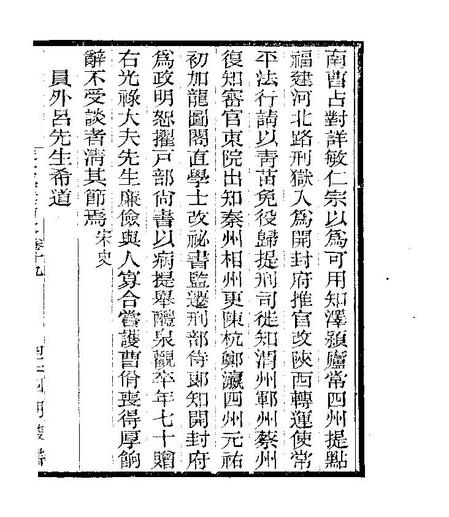 南曹占對詳敏仁宗以爲可用知澤潁廬常四州提點
福建河北路刑獄入爲開封府推官改陝西轉運使常
平法行請以青苗免役歸提刑司徙知渭州鄆州蔡州
復知審官東院出知秦州相州更陳杭鄭瀛四州元祐
初加龍圖閣直學士改祕書監遷刑部侍郎知開封府
爲政明恕擢戸部尚書以病提舉醴泉觀卒年七十贈
右光祿大夫先生廉儉與人寡合嘗護曹佾喪得厚餉
辭不受談者清其節焉宋史
員外呂先生希道
卷十九